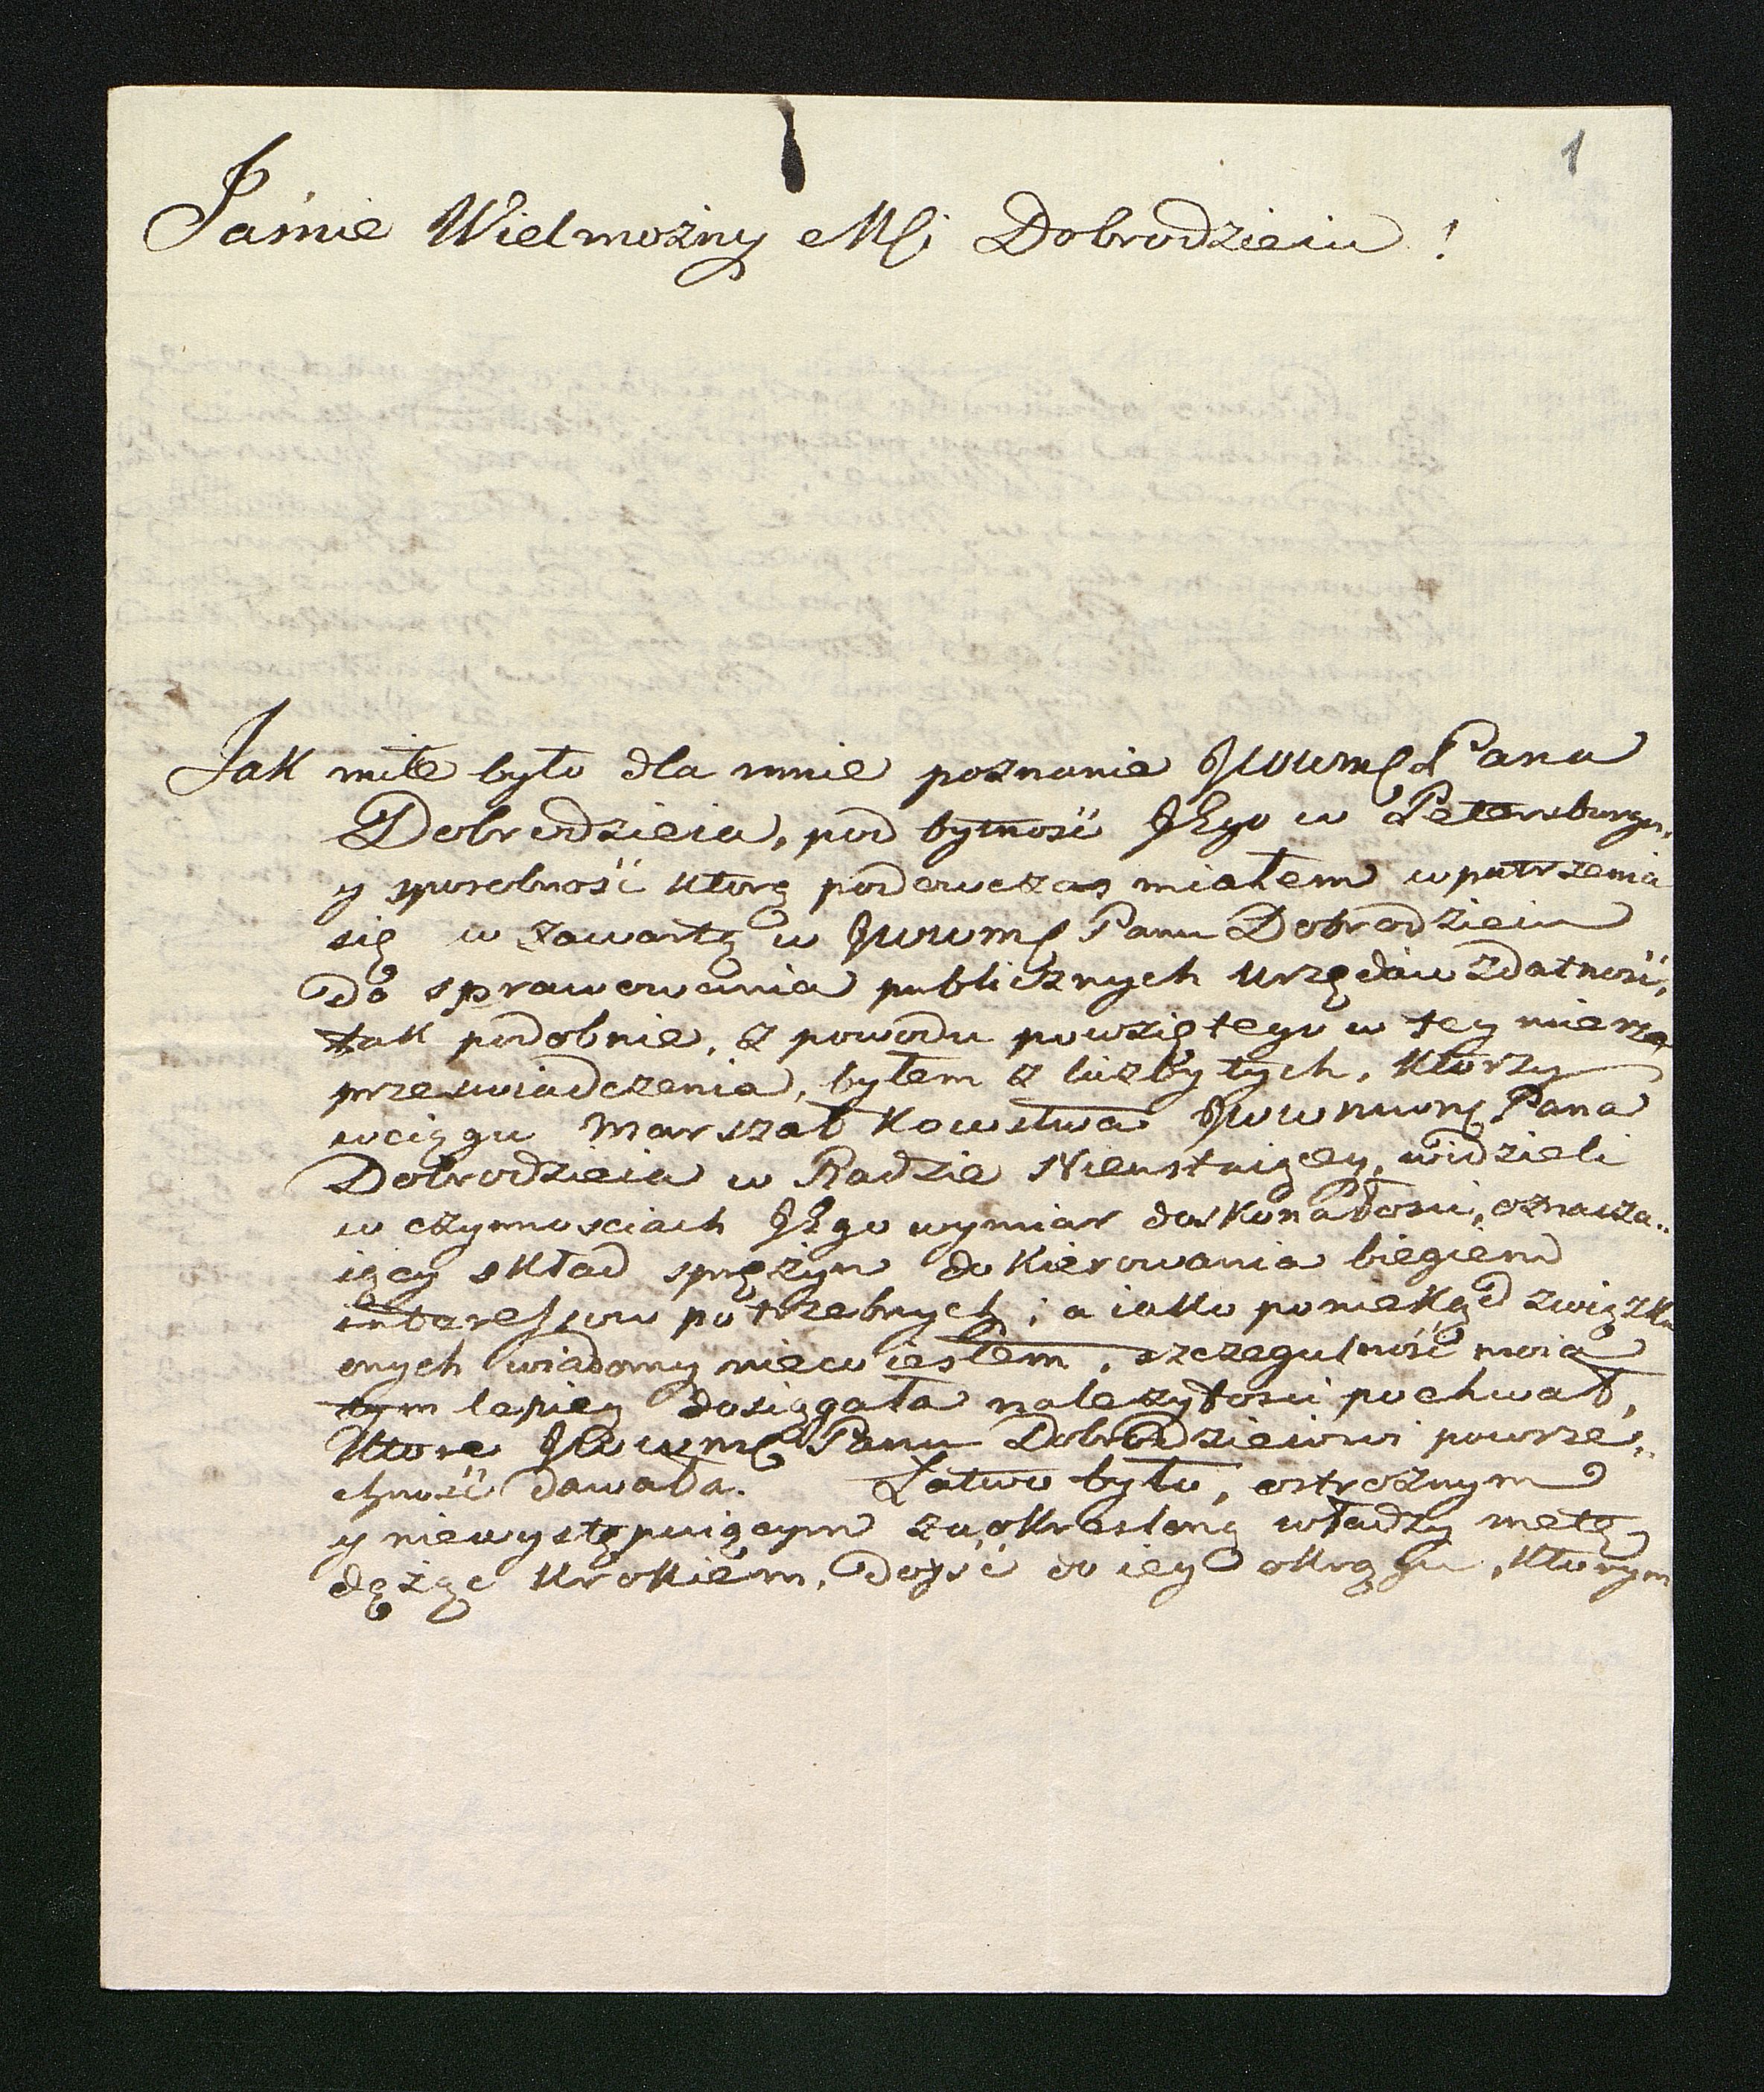 1
Jaśnie Wielmożny Mci Dobrodzieiu!
Jak miłe było dla mnie poznanie JWWMć Pana
Dobrodzieia, pod bytność JEgo w Petersburgu,
y sposobność ktorą podowczas miałem wpatrzenia
się w zawartą w JWWMć Panu Dobrodzieiu
do sprawowania publicznych urzędów zdatność,
tak podobnie, z powodu powziętego w tey mierze
przeswiadczenia, byłem z liczby tych, ktorzy
wciągu Marszałkowstwa JWW Pana
Dobrodzieia w Radzie Nieustaiącey, widzieli
w czynnosciach JEgo wymiar doskonałosci, oznacza„
iący skład sprężyn do kierowania biegiem
interessow potrzebnych; a iako poniekąd związku
onych wiadomy, szczegulność moia
tym lepiey dosięgała należytosci pochwał,
ktore JWWMć Panu Dobrodzieiowi powsze„
chność dawała. Łatwo było, ostrożnym
y niewystępuiącym za okresloną władzy metę
dążąc krokiem, dojść do iey okręgu, ktorym